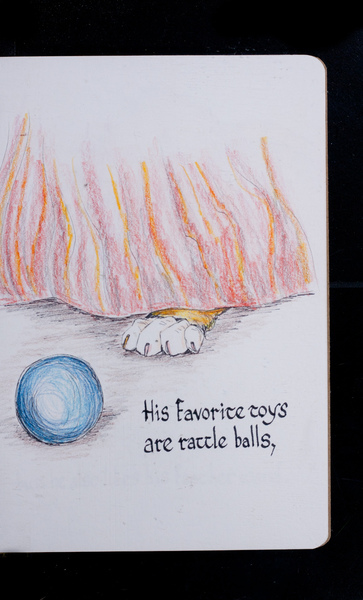 His Favorite toys
are rattle balls,